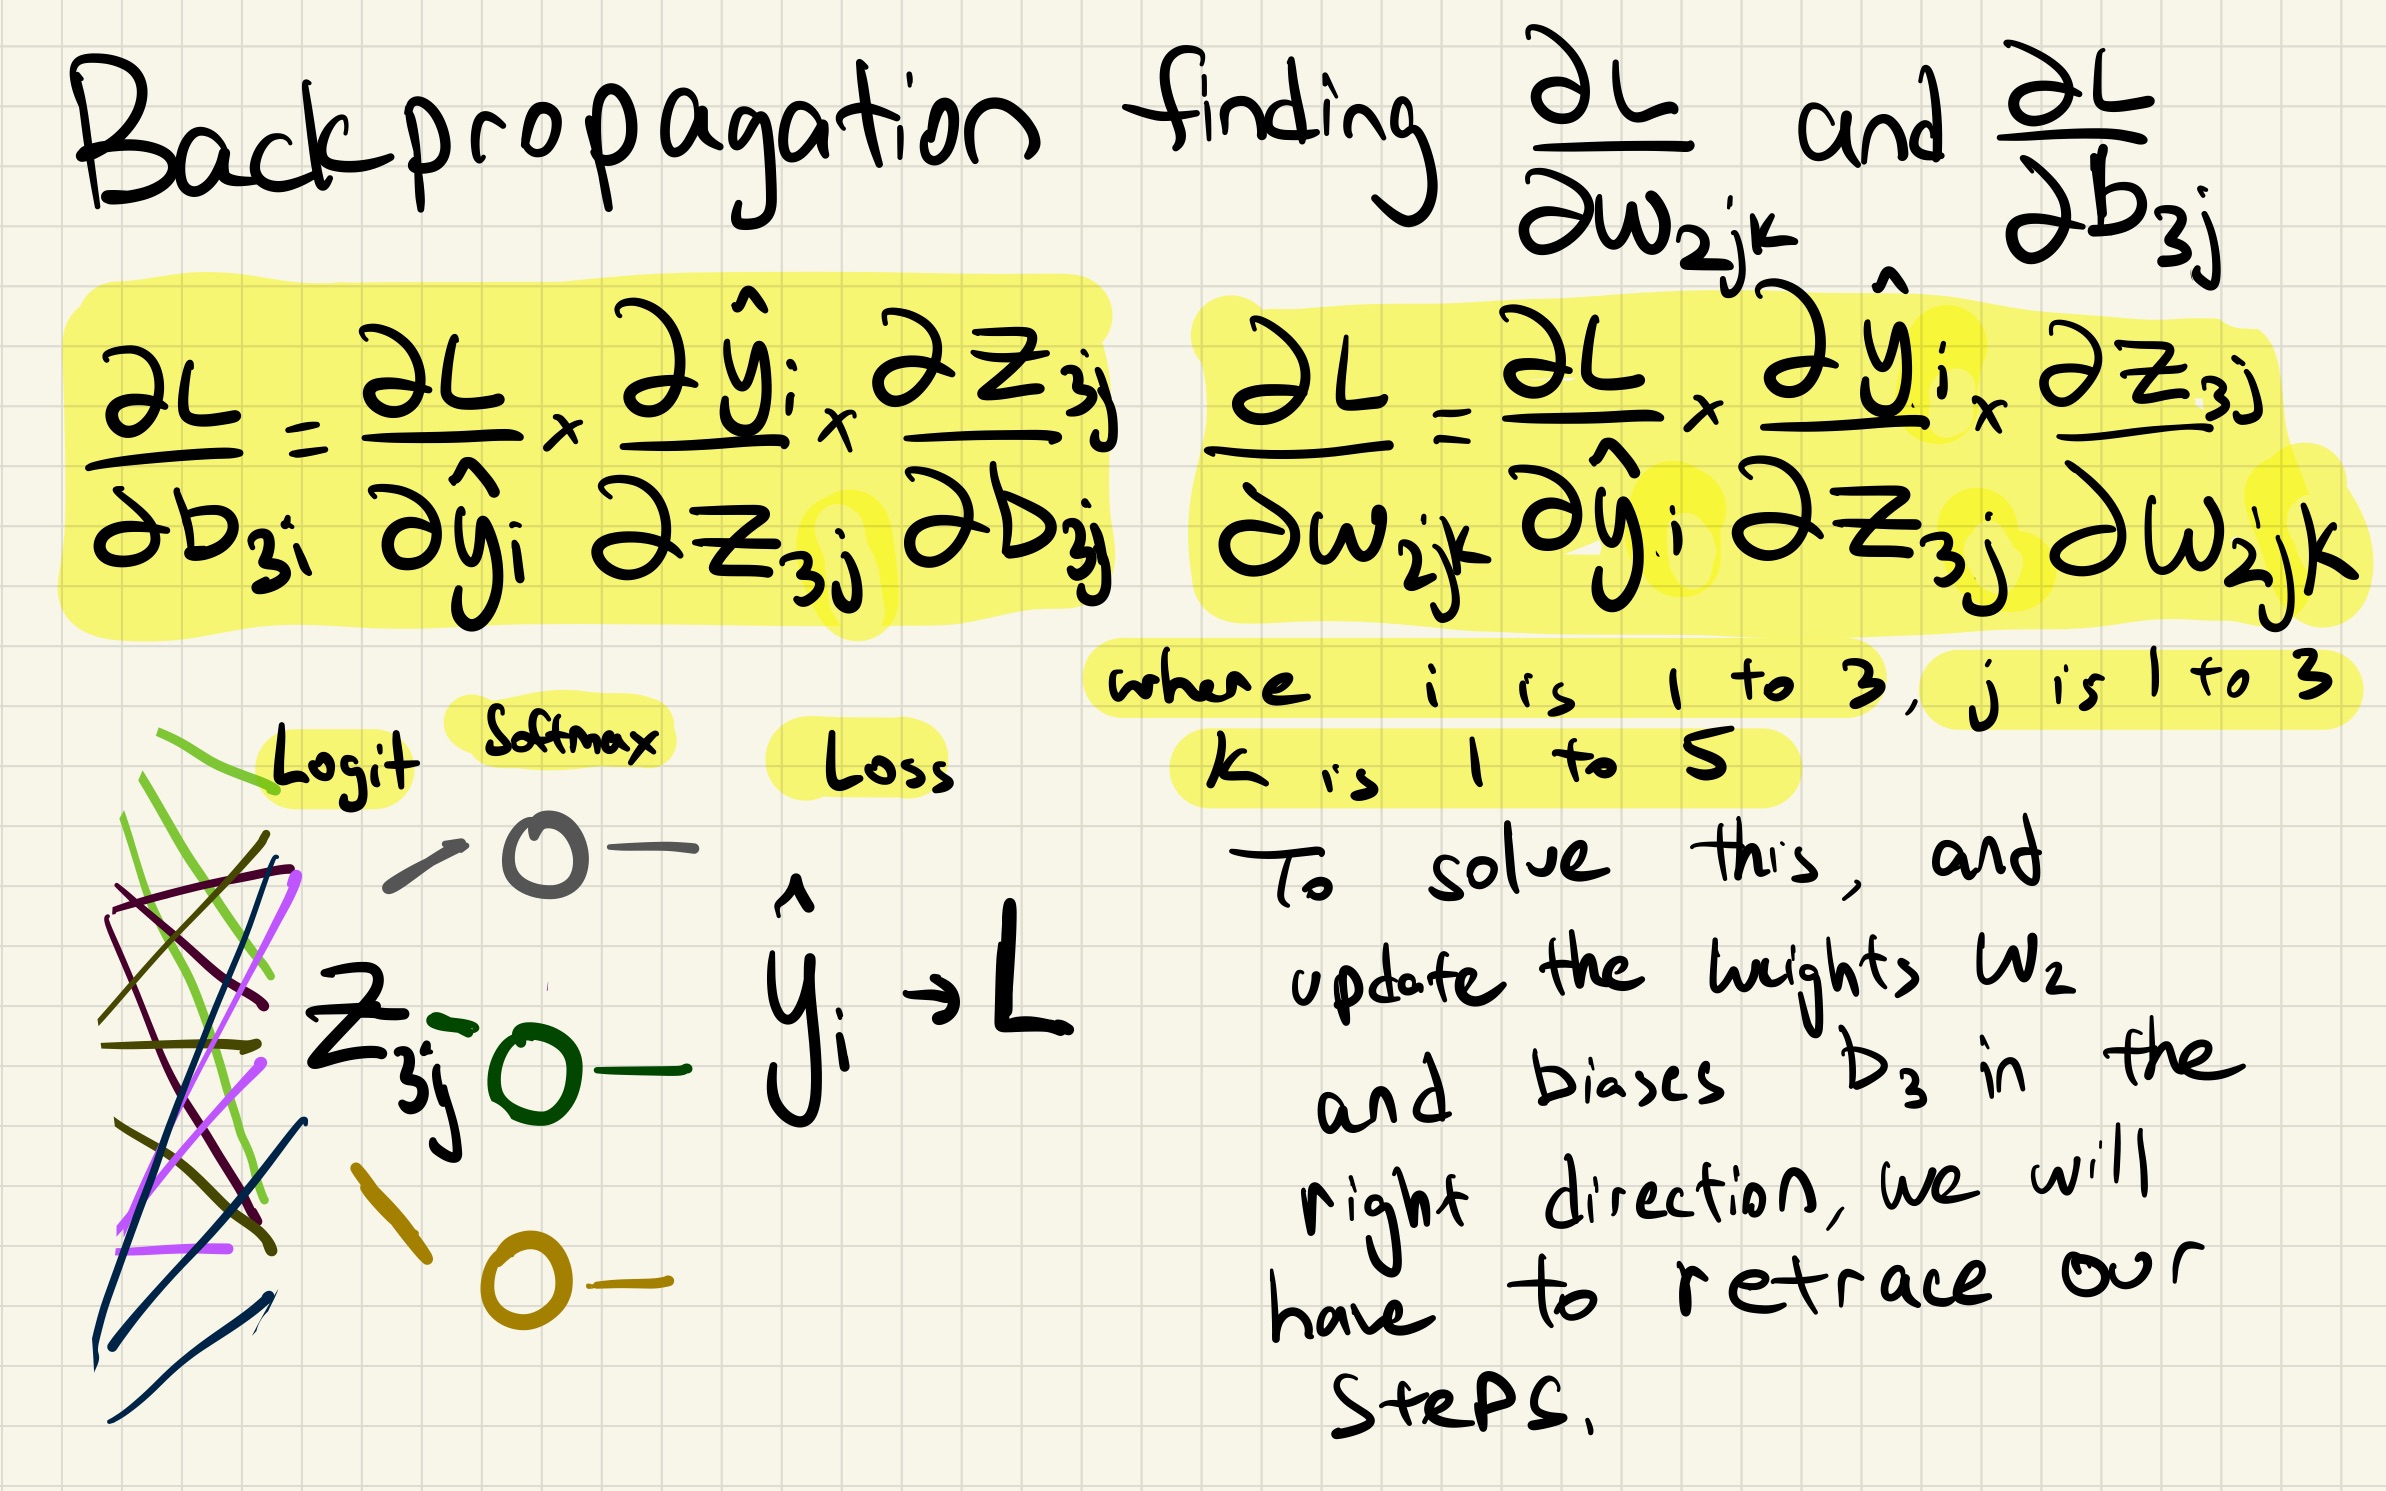 Backpropagation finding ∂L/∂w₂ⱼₖ and ∂L/∂b₃ⱼ
∂L/∂b₃ᵢ = ∂L/∂ŷᵢ × ∂ŷᵢ/∂z₃ⱼ × ∂z₃ⱼ/∂b₃ⱼ
∂L/∂w₂ⱼₖ = ∂L/∂ŷᵢ × ∂ŷᵢ/∂z₃ⱼ × ∂z₃ⱼ/∂w₂ⱼₖ
where i is 1 to 3, j is 1 to 3
k is 1 to 5
Logit Softmax Loss
z₃ⱼ ŷᵢ → L
To solve this, and
update the weights W₂
and biases b₃ in the
right direction, we will
have to retrace our
steps.